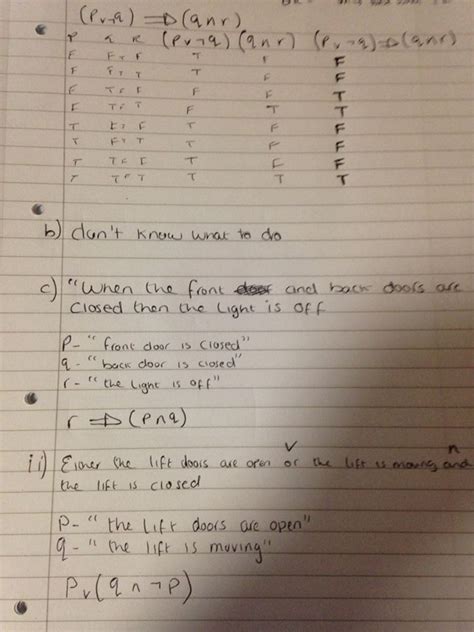 (P∨¬q) ⇒ (q∧r)
P q R (P∨¬q) (q∧r) (P∨¬q)⇒(q∧r)
F F T F T F F
F F T T T F F
F T F F F F T
F T F T F T T
T F T F T F F
T F T T T F F
T T F F T F F
T T F T T T T
b) don't know what to do
c) "When the front and back doors are
closed then the light is off
P - "front door is closed"
q - "back door is closed"
r - "the light is off"
r ⇒ (P∧q)
∨ ∧
ii) Either the lift doors are open or the lift is moving and
the lift is closed
P - "the lift doors are open"
q - "the lift is moving"
P∨(q∧¬P)